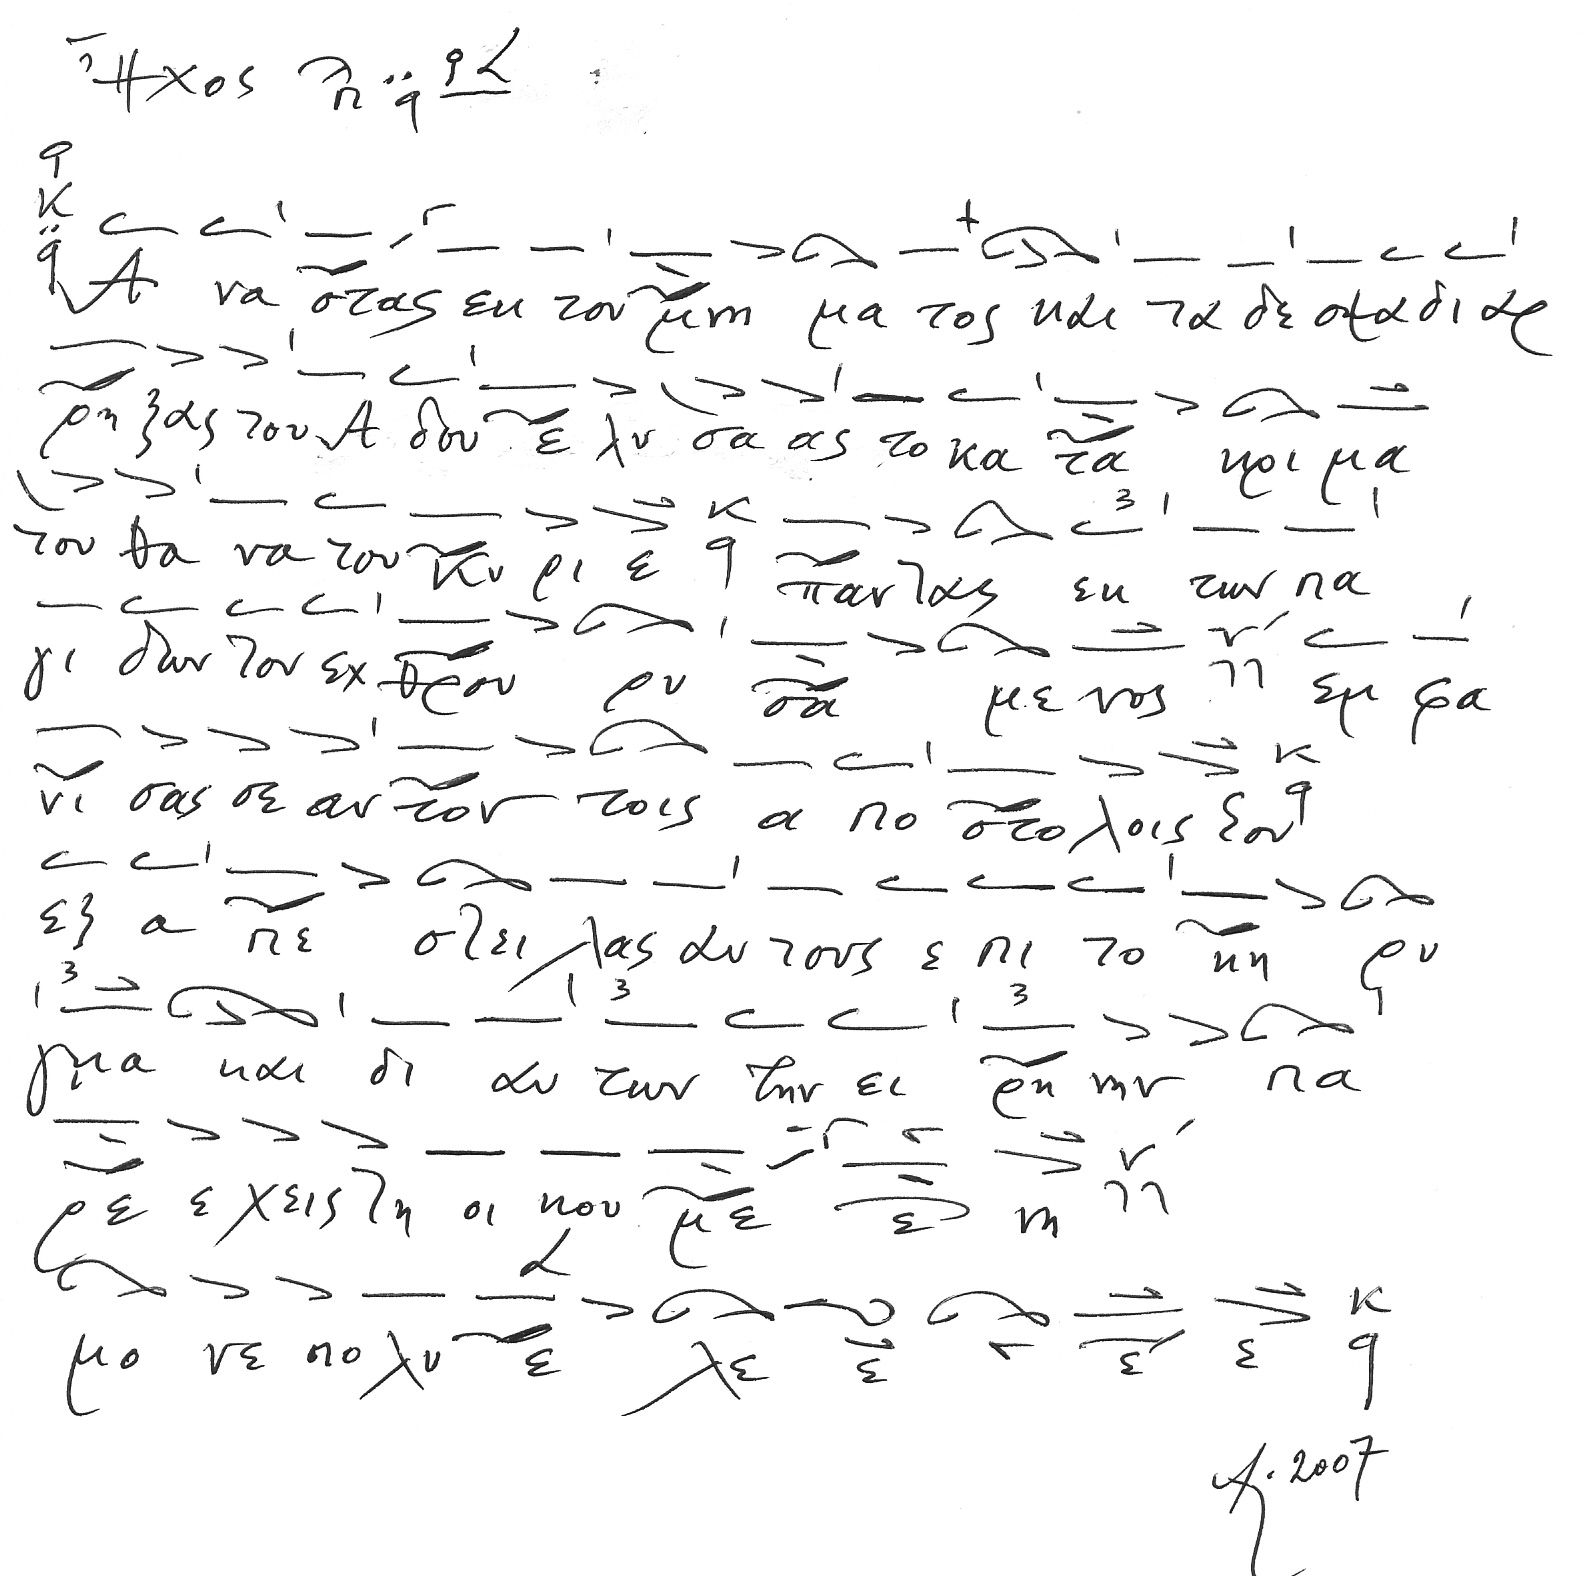 Ἦχος λ π ̈ q
K
q Α να στας εκ του μνη μα τος και τα δε σμα δι αρ
ρη ξας του Α δου ε λυ σα ας το κα τα κρι μα
του θα να του Κυ ρι ε K q παν τας εκ των πα
γι δων του εχ θρου ρυ σα με νος ν΄ εμ φα
νι σας σε αυ τον τοις α πο στο λοις Σου K q
εξ α πε στει λας αυ τους ε πι το κη ρυ
γμα και δι αυ των την ει ρη νην πα
ρε ε χεις τη οι κου με ε νη ν΄
μο νε πο λυ ε λε ε ε ε K q
2007